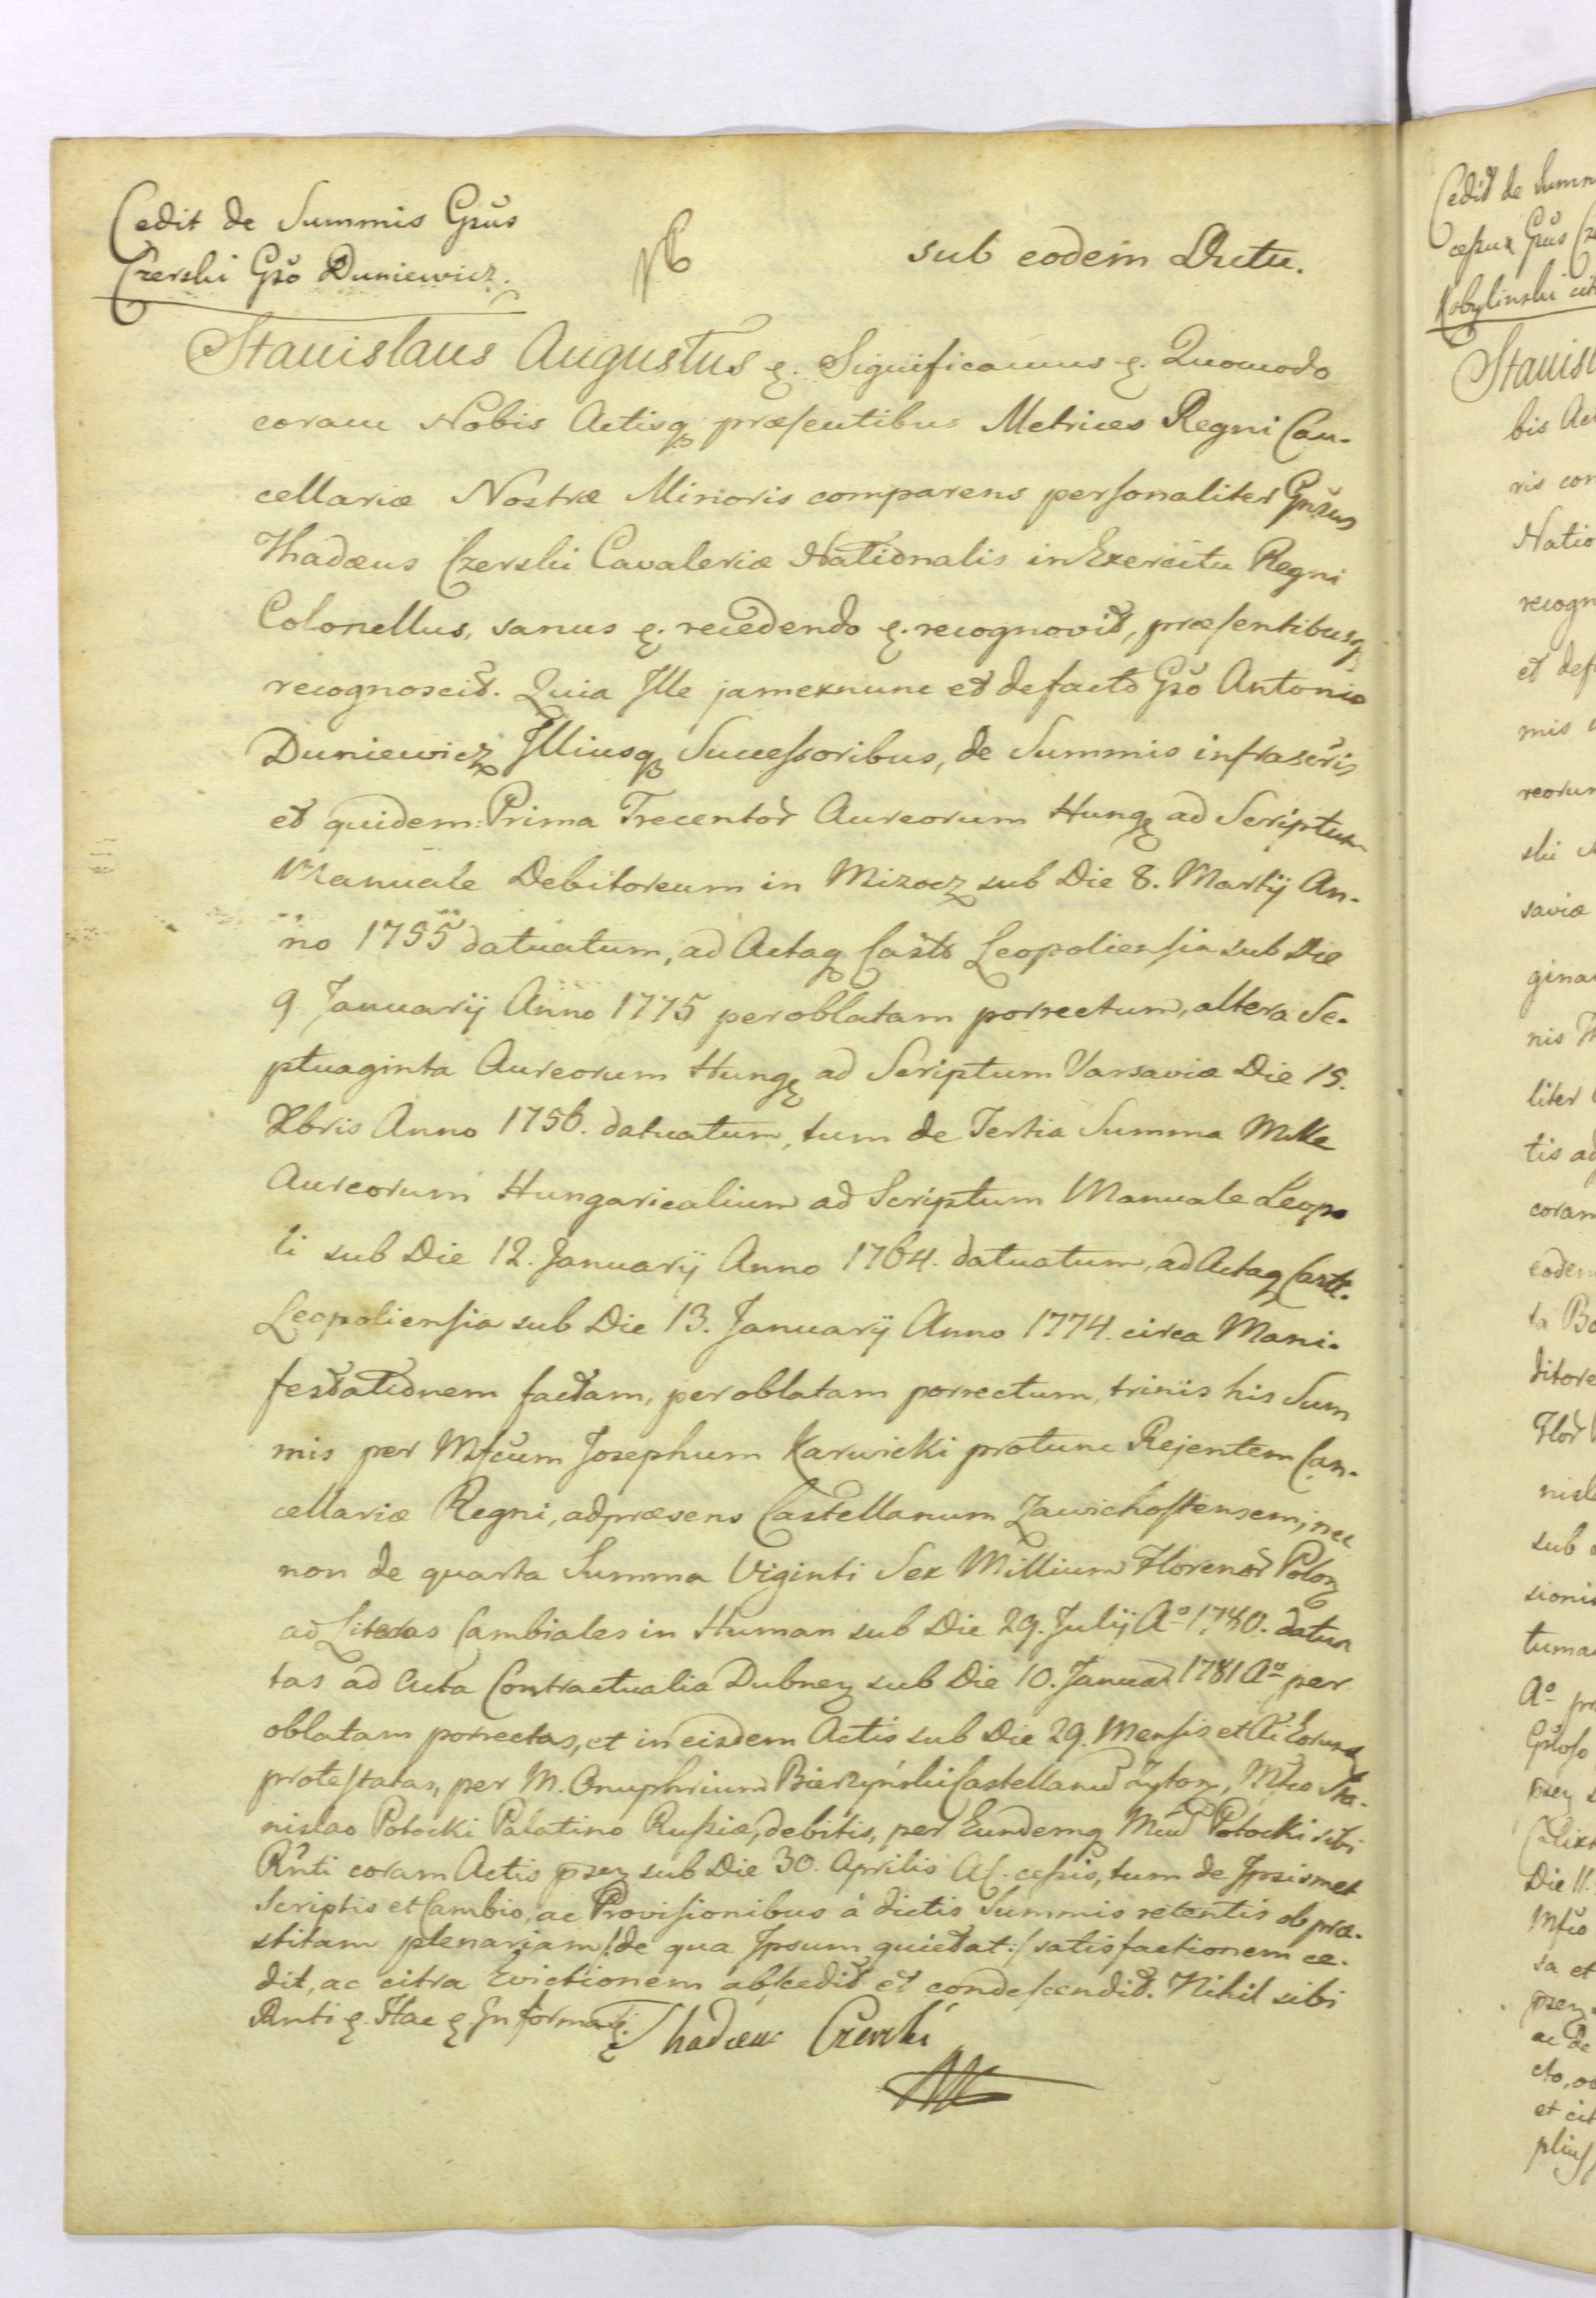 Cedit de Summis Gsus
Czerski Gso Duniewicz.
sub eodem Actu.
Stanislaus Augustus &. Significamus &. Quomodo
coram Nobis Actisq præsentibus Metrices Regni Can-
cellariæ Nostræ Minoris comparens personaliter Gnsus
Thadæus Czerski Cavaleriæ Nationalis in Exercitu Regni
Colonellus, sanus &. recedendo &. recognovit, præsentibusq
recognoscit. Quia Ille jamexnunc et defacto Gso Antonio
Duniewicz Illiusq Successoribus, de Summis infrascris
et quidem: Prima Trecentor Aureorum Hung ad Scriptum
Manuale Debitoreum in Mizocz sub Die 8. Martij An-
no 1755 datuatum, ad Actaq Casts Leopoliensia sub Die
9 Januarij Anno 1775 peroblatam porrectum, altera Se-
ptuaginta Aureorum Hung ad Scriptum Varsaviæ Die 15.
Xbris Anno 1756. datuatum, tum de Tertia Summa Mille
Aureorum Hungaricalium ad Scriptum Manuale Leopo
li sub Die 12. Januarij Anno 1764. datuatum, ad Actaq Castr.
Leopoliensia sub Die 13. Januarij Anno 1774. circa Mani-
festationem factam, peroblatam porrectum, trinis his Sum
mis per Mfcum Josephum Karwicki protunc Rejentem Can-
cellariæ Regni, adpræsens Castellanum Zawichostensem, nec
non de quarta Summa Viginti Sex Millium Florenor Polon
ad Literas Cambiales in Human sub Die 29. Julij Ao 1780. datua
tas ad Acta Contractualia Dubnen sub Die 10. Januar 1781 Ao per
oblatam porrectas, et in eisdem Actis sub Die 29. Mensis et Ai Eorund
protestatas, per M. Onuphrium Bierzyński Castellanum Żytom, Mfco Sta-
nislao Potocki Palatino Russiæ, debitis, per Eundemq Mcum Potocki sibi
Rnti coram Actis psen sub Die 30. Aprilis A. C. cessis, tum de Ipsismet
Scriptis et Cambio, ac Provisionibus à dictis Summis retentis ob præ-
stitam plenariam /: de qua Ipsum quietat :/ satisfactionem ce-
dit, ac citra Evictionem abscedit et condescendit. Nihil sibi
Rnti &. Hac &. In forma &.
Thadæus Czerski